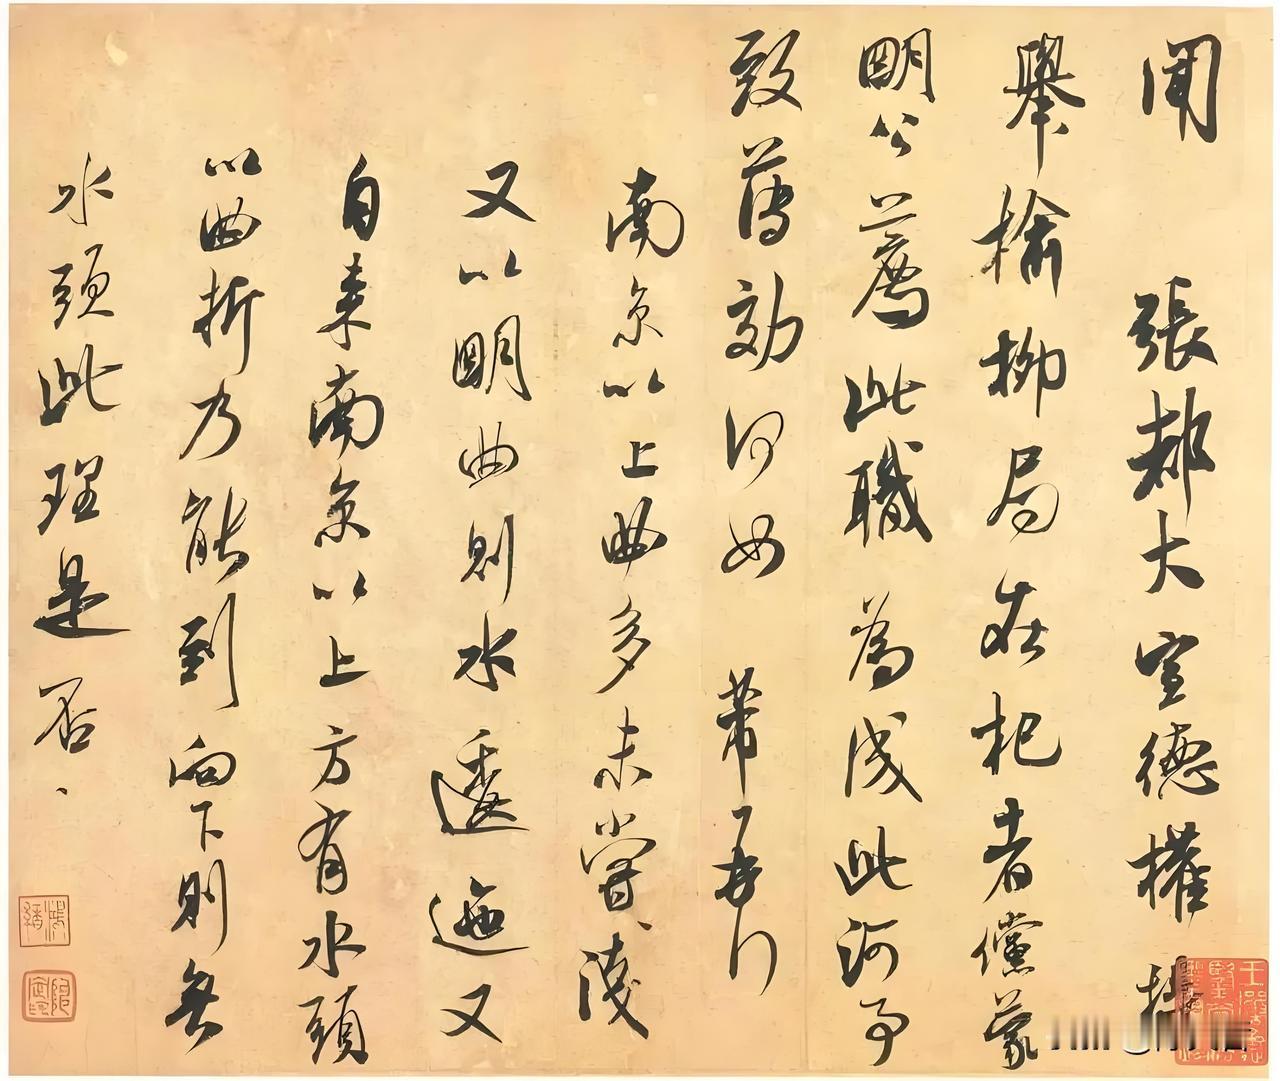 闻張都大宣德權提
舉榆柳局在杞者儻蒙
明公薦此職為成此河事
致薄效何如芾再行
南京以上曲多未嘗淺
又以明曲則水逶迤又
自来南京以上方有水頭
以曲折乃能到向下則無
水頭此理是否